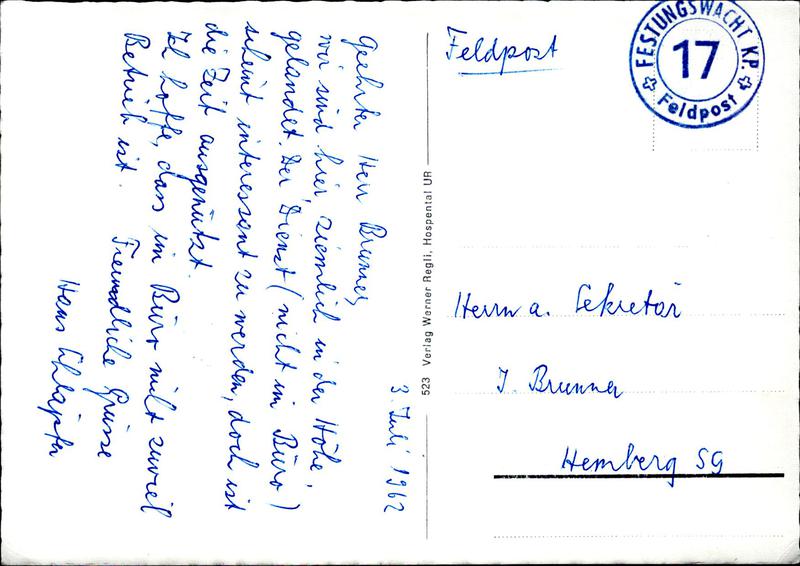 3. Juli 1962
Geehrter Herr Brunner,
wir sind hier ziemlich in der Höhe
gelandet. Der Dienst (nicht im Büro)
scheint interessant zu werden, doch ist
die Zeit ausgenützt.
Ich hoffe, dass im Büro nicht zuviel
Betrieb ist.
Freundliche Grüsse
Hans
523 Verlag Werner Regli, Hospental UR
Feldpost
FESTUNGSWACHT KP.
17
Feldpost
Herrn a. Sekretär
J. Brunner
Hemberg SG